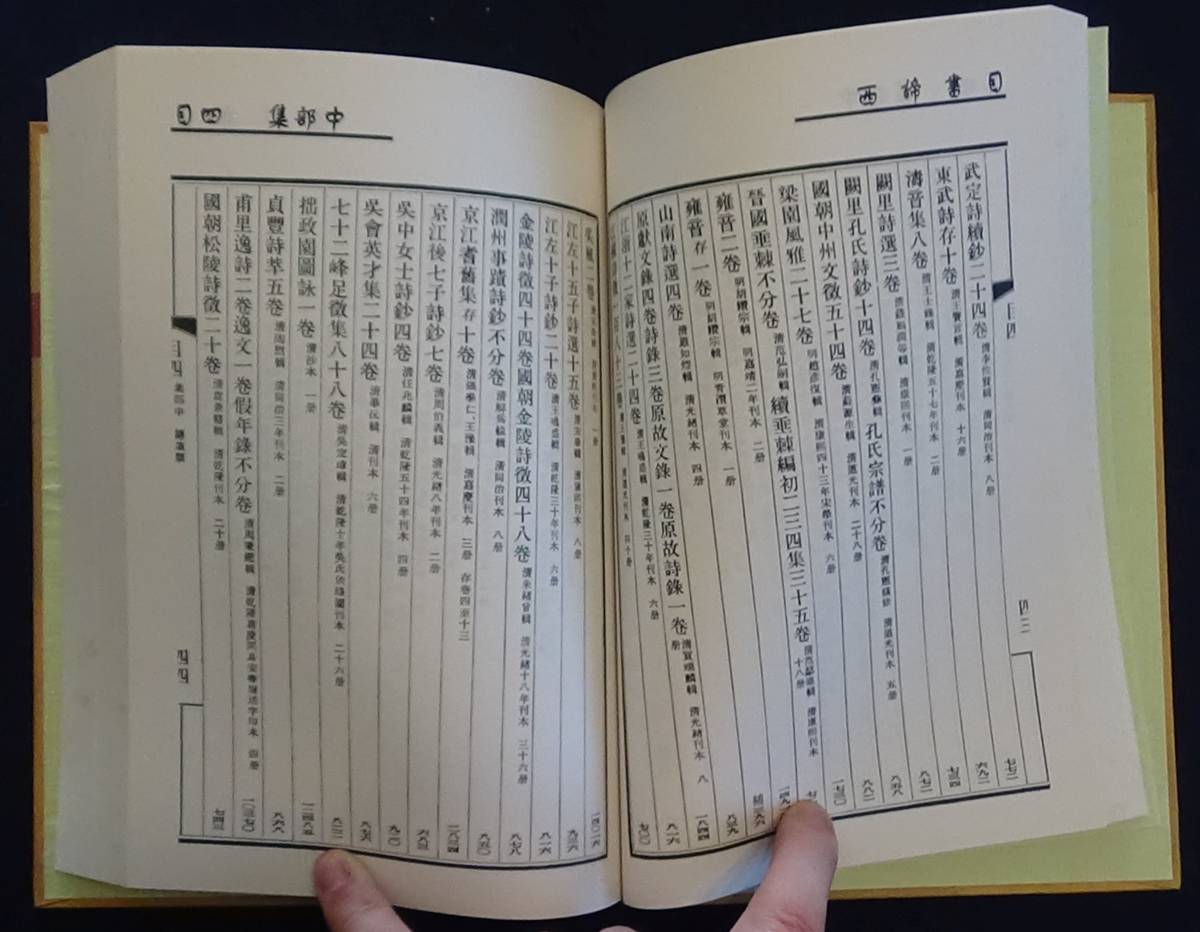 西諦書目
武定詩續鈔二十四卷 清李佐賢輯 清同治刊本 八册 七七二
東武詩存十卷 清王賡言輯 清嘉慶刊本 十六册 六九二
濤音集八卷 清王士祿輯 清乾隆五十七年刊本 二册 七三四
闕里詩選三卷 輯 清康熙刊本 一册 八七二
闕里孔氏詩鈔十四卷 清孔憲彝輯 孔氏宗譜不分卷 清道光刊本 五册
國朝中州文徵五十四卷 清蘇源生輯 清道光刊本 二十八册 八八二
梁園風雅二十七卷 明趙彥復輯 清康熙四十三年宋犖刊本 六册
晉國垂棘不分卷 清范弘嗣輯 續垂棘編初二三四集三十五卷 輯 清康熙刊本 十八册
雍音二卷 明胡纘宗輯 明嘉靖二年刊本 二册
雍音存一卷 明胡纘宗輯 明青渭草堂刊本 一册 八三九
山南詩選四卷 清嚴如熤輯 清光緒刊本 四册 一八四四
原獻文錄四卷詩錄三卷原故文錄一卷原故詩錄一卷 清賀瑞麟輯 清光緒刊本 八册 八一六
江浙十二家詩選二十四卷 清王鳴盛輯 清乾隆三十年刊本 六册 七〇〇
目四
四三
目四 集部中
二卷 一册
江左十五子詩選十五卷 清宋犖輯 清康熙刊本 八册
江左十子詩鈔二十卷 清王鳴盛輯 清乾隆三十年刊本 六册
金陵詩徵四十四卷國朝金陵詩徵四十八卷 清朱緒曾輯 清光緒十八年刊本 三十六册
潤州事蹟詩鈔不分卷 清解爲榦輯 清同治刊本 八册
京江耆舊集存十卷 清張學仁、王豫輯 清嘉慶刊本 三册 存卷四至十三
京江後七子詩鈔七卷 清周伯義輯 清光緒八年刊本 二册
吳中女士詩鈔四卷 清任兆麟輯 清乾隆五十四年刊本 四册
吳會英才集二十四卷 清畢沅輯 清刊本 六册 八七六
七十二峰足徵集八十八卷 清吳定璋輯 清乾隆十年吳氏依綠園刊本 二十六册
拙政園圖詠一卷 清抄本 一册
貞豐詩萃五卷 輯 清同治三年刊本 二册 八六八
甫里逸詩二卷逸文一卷假年錄不分卷 清周秉鑑輯 清乾隆嘉慶間易安書屋活字印本 四册
國朝松陵詩徵二十卷 清袁景輅輯 清乾隆刊本 二十册 七四三
目四 集部中 總集類
四四